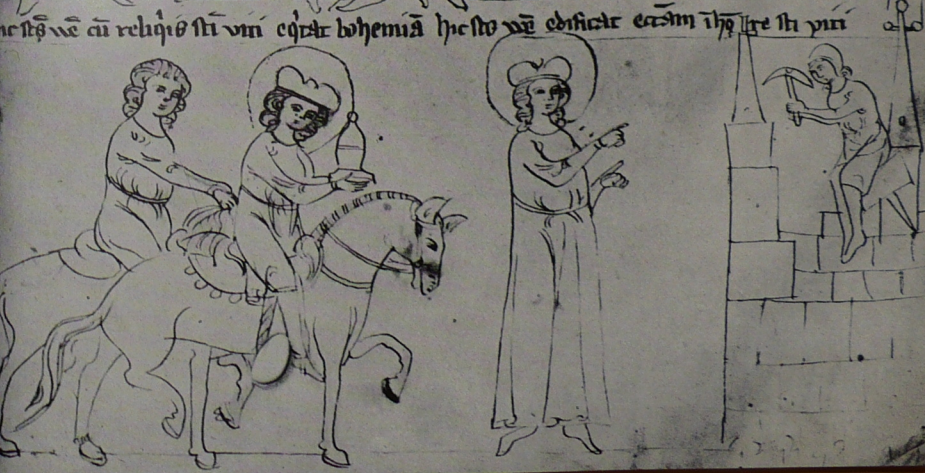 wē cū reliq̇is sti viti eq̇tat bohemiā hic sts wē edificat ecc̄am sti viti